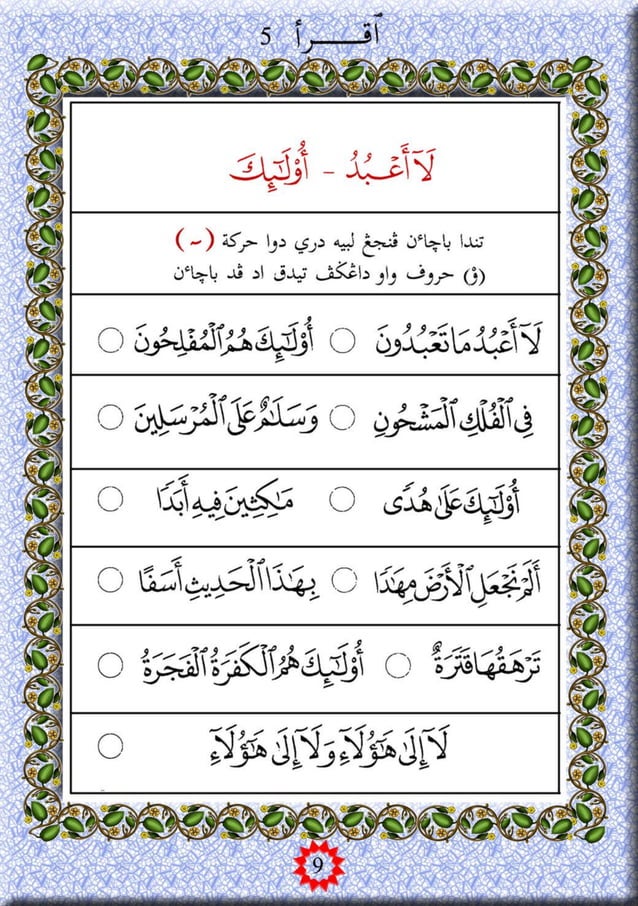 ٱقـــرأ 5
لَآ أَعْبُدُ - أُو۟لَـٰٓئِكَ
تندا باچاءن ڤنجڠ لبيه دري دوا حركة ( ~ )
(و۟) حروف واو داڠݢڤ تيدق اد ڤد باچاءن
لَآ أَعْبُدُ مَا تَعْبُدُونَ ○ أُو۟لَـٰٓئِكَ هُمُ ٱلْمُفْلِحُونَ ○
فِى ٱلْفُلْكِ ٱلْمَشْحُونِ ○ وَسَلَـٰمٌ عَلَى ٱلْمُرْسَلِينَ ○
أُو۟لَـٰٓئِكَ عَلَىٰ هُدًى ○ مَـٰكِثِينَ فِيهِ أَبَدًا ○
أَلَمْ نَجْعَلِ ٱلْأَرْضَ مِهَـٰدًا ○ بِهَـٰذَا ٱلْحَدِيثِ أَسَفًا ○
تَرْهَقُهَا قَتَرَةٌ ○ أُو۟لَـٰٓئِكَ هُمُ ٱلْكَفَرَةُ ٱلْفَجَرَةُ ○
لَآ إِلَىٰ هَـٰٓؤُلَآءِ وَلَآ إِلَىٰ هَـٰٓؤُلَآءِ ○
9